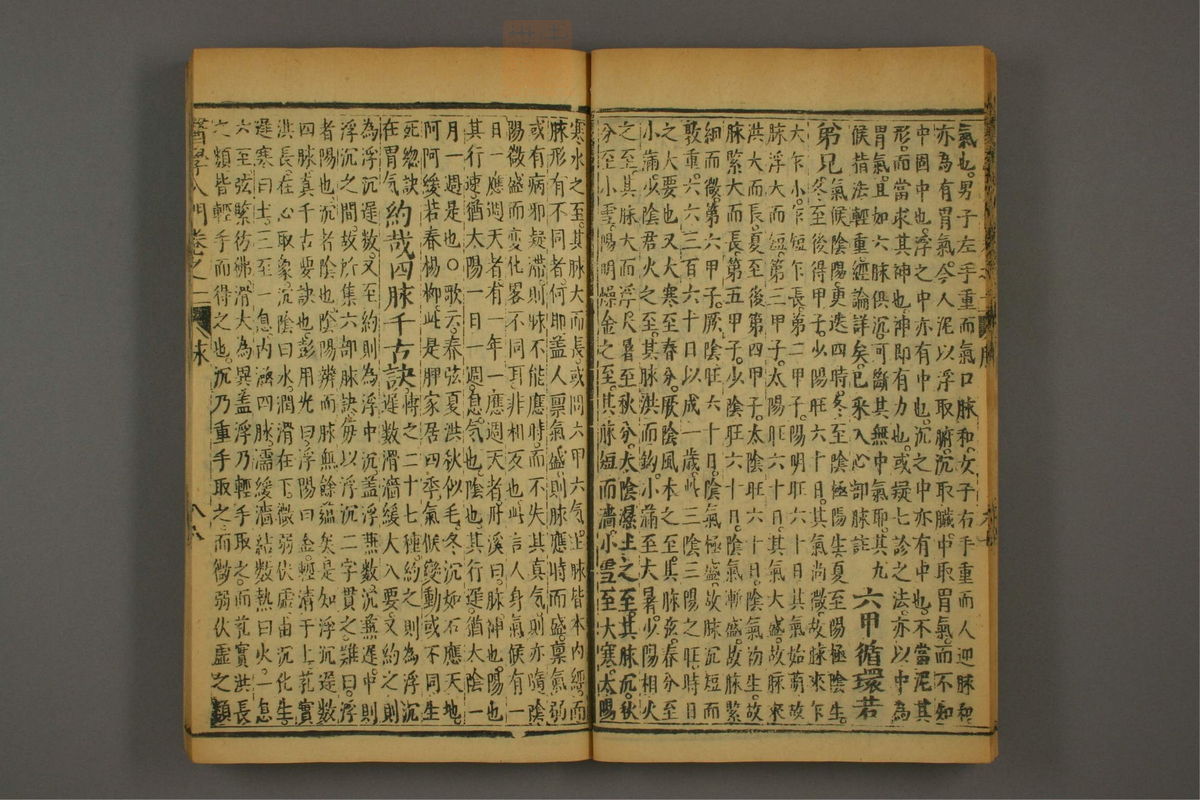 氣也。男子左手重而氣口脉和。女子右手重而人迎脉和
亦為有胃氣。今人泥以浮取腑。沉取臟。中取胃氣。而不知
中固中也。浮之中亦有中也。沉之中亦有中也。不當泥其
形。而當求其神也。神即有力也。或疑七診之法。亦以中為
胃氣。且如六脉俱沉。可斷其無中氣耶。其九
候指法輕重經論詳矣。已采入心部脉註
六甲循環若
弟兄
氣候陰陽。更迭四時。冬至陰極陽生。夏至陽極陰生。
冬至後得甲子。少陽旺六十日。其氣尚微。故脉來乍
大乍小。乍短乍長。第二甲子。陽明旺六十日其氣始萌。故
脉浮大而短。第三甲子。太陽旺六十日。其氣大盛。故脉來
洪大而長。夏至後第四甲子。太陰旺六十日。陰氣初生。故
脉緊大而長。第五甲子。少陰旺六十日。陰氣漸盛。故脉緊
細而微。第六甲子。厥陰旺六十日。陰氣極盛。故脉沉短而
敦重。六六三百六十日以成一歲。此三陰三陽之旺。時日
之大要也。又大寒至春分。厥陰風木之至。其脉弦。春分至
小滿。少陰君火之至。其脉洪而鈎。小滿至大暑。少陽相火
之至。其脉大而浮。大暑至秋分。太陰濕土之至。其脉沉。秋
分至小雪。陽明燥金之至。其脉短而濇。小雪至大寒。太陽
寒水之至。其脉大而長。或問六甲六氣。上脉皆本內經。而
脉形有不同者何。即盖人稟氣盛。則脉應時而盛。稟氣弱
或有病邪疑滯。則脉不能應時。而不失其真氣。則亦隨陰
陽微盛而变化。畧不同耳。非相反也。此言人身氣候有一
日一應週天者。有一年一應週天者。肝溪曰。脉神也。陽也
其行速。猶大陽一日一週。息氣也。陰也。其行遲。猶大陰一
月一週是也。○歌云。春弦夏洪秋似毛。冬沉如石應天地。
阿阿緩若春楊柳。此是脾家居四季。氣候變動或不同。生
死總訣在胃氣
約哉四脉千古訣
脉之二十七種。約之則為浮沉
遲數滑濇緩大八要。又約之則
為浮沉遲數。又至約則為浮中沉。盖浮兼數。沉兼遲。中則
浮沉之間。故所集六部脉訣。每以浮沉二字貫之。難曰。浮
者陽也。沉者陰也。陰陽辨而脉無餘蘊矣。是知浮沉遲數
四脉。真千古要訣也。彭用光曰。浮陽曰金。輕清于上。芤實
洪長。在心取象。沉陰曰水。潤滑在下。微弱伏虛。甫沉化生。
遲寒曰土。三至一息。內涵四脉。濡緩濇結。數熱曰火。一息
六至。弦緊彷彿。滑大為異。盖浮乃輕手取之。而芤實洪長
之類。皆輕手而得之也。沉乃重手取之。而微弱伏虛之類
醫學入門 卷之一 脉